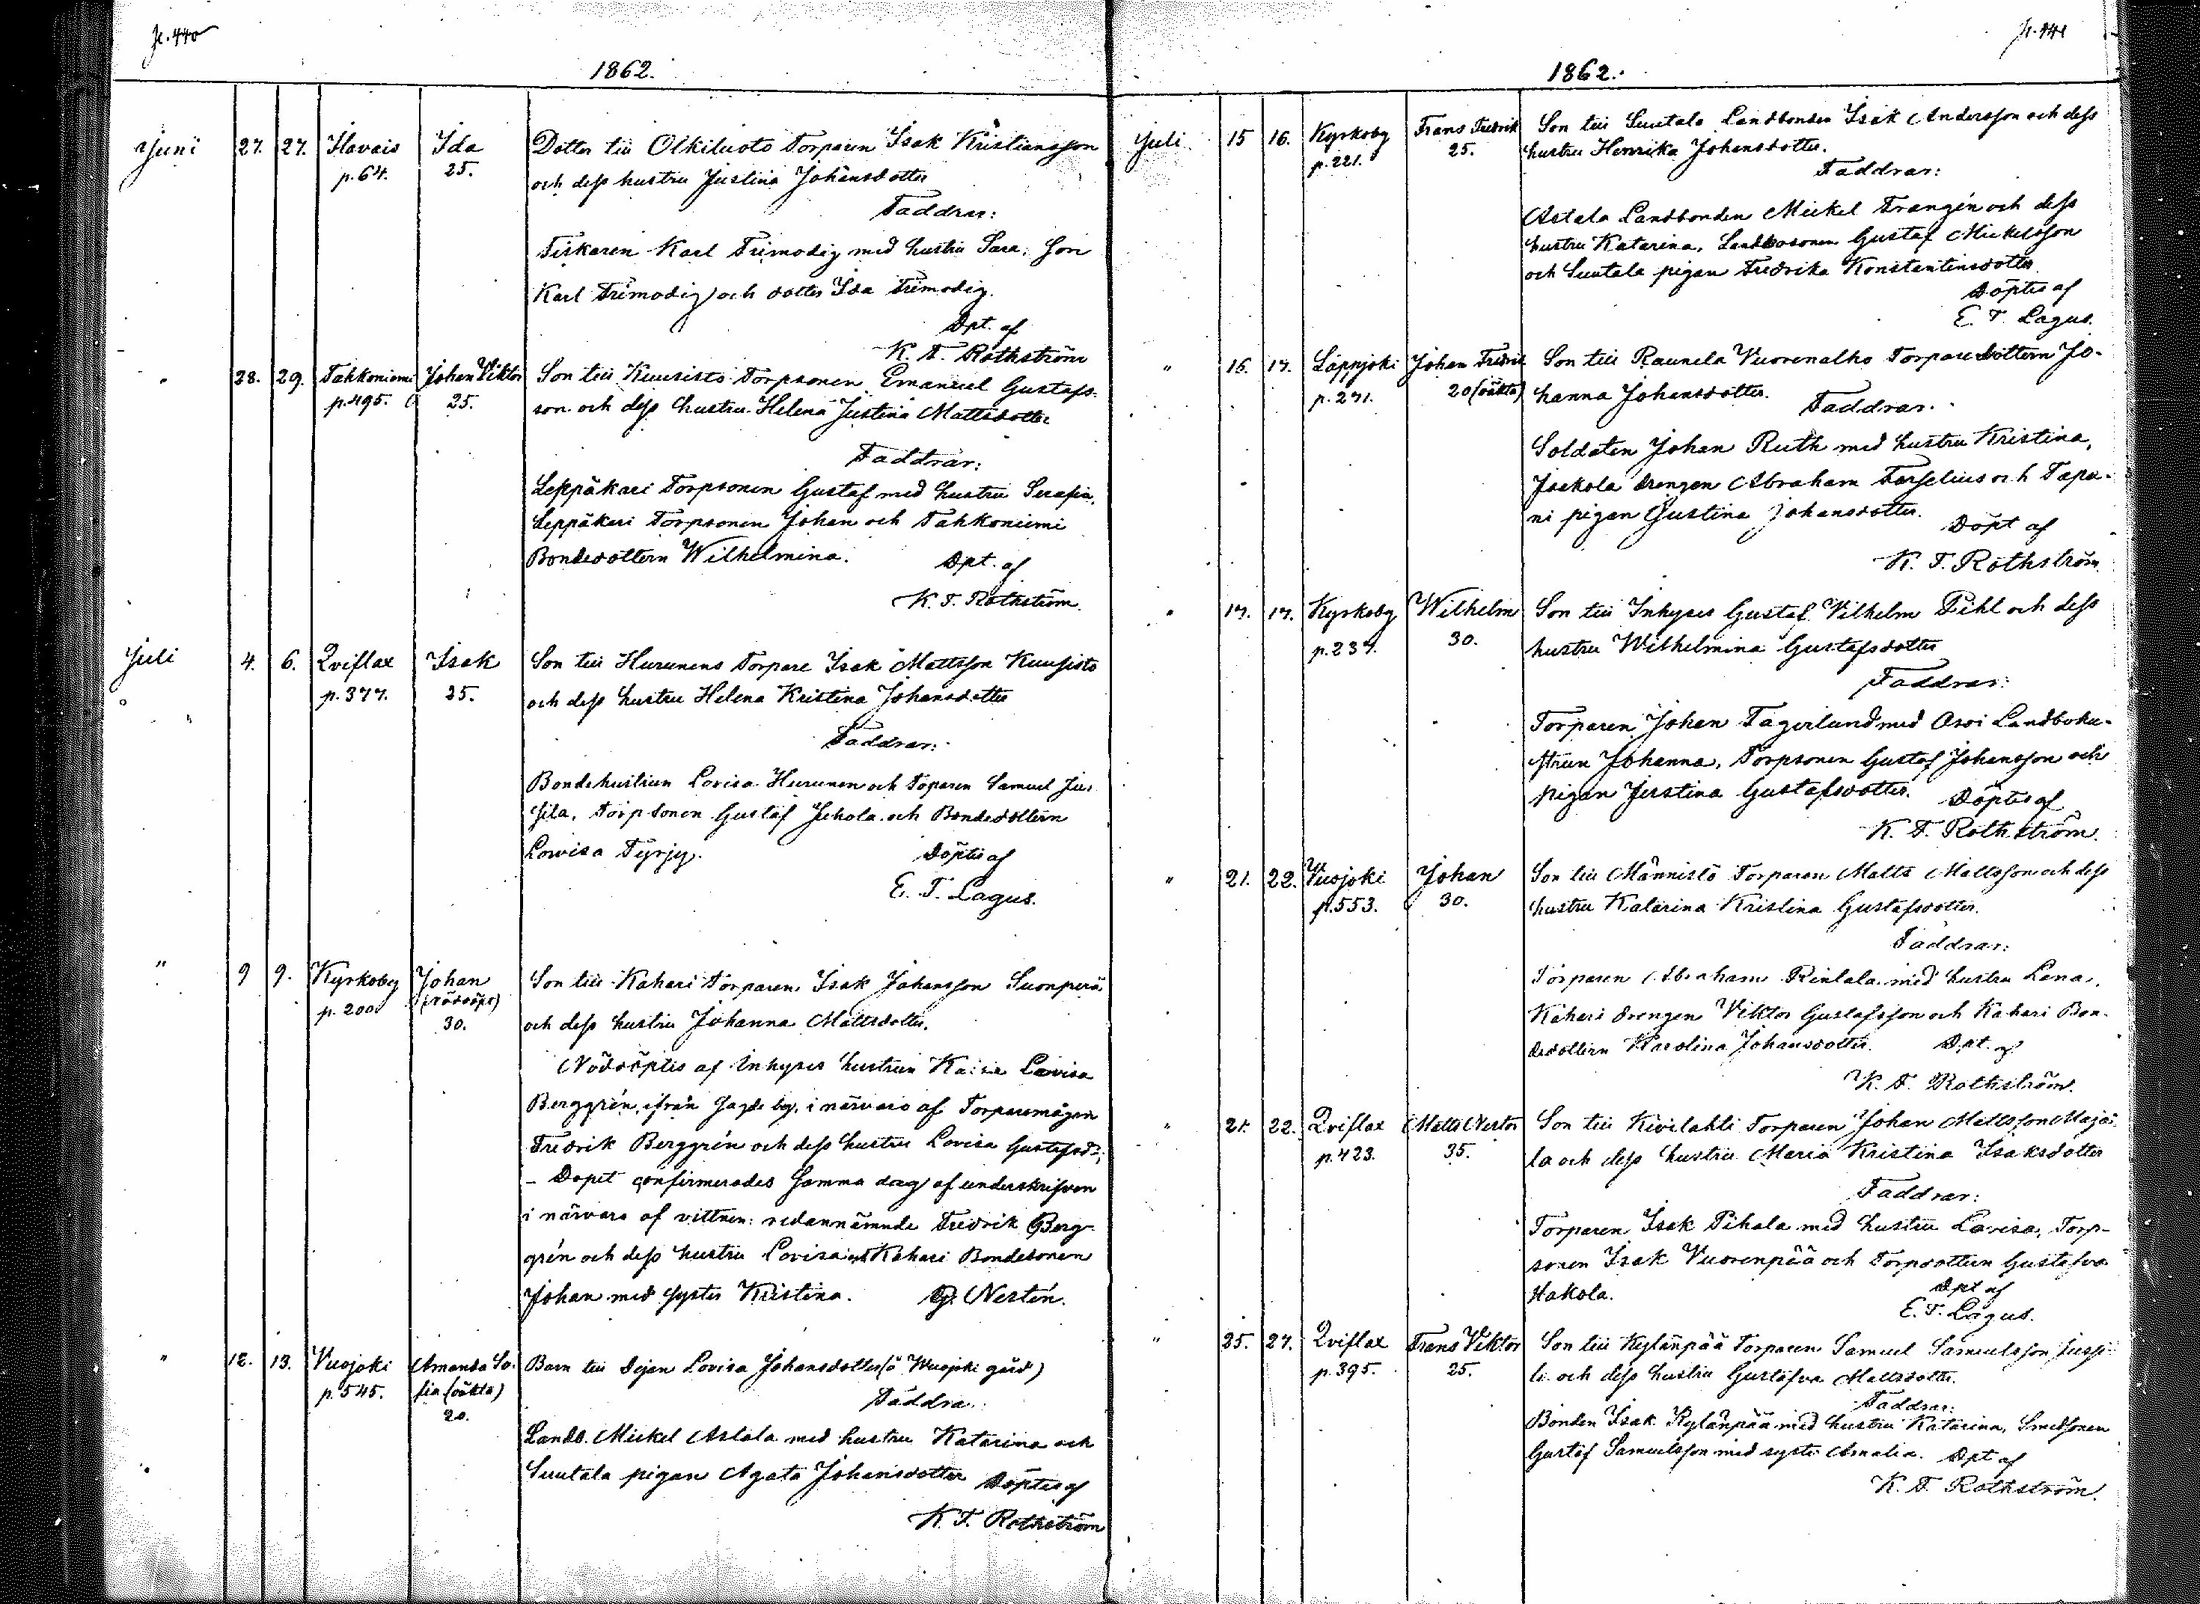 p. 440
1862.
Juni 27. 27. Ilavais Ida Dotter till Olkiluoto Torparen Isak Kristiansson
p. 64. 25. och dess hustru Justina Johansdotter
Faddrar:
Fiskaren Karl Frimodig med hustru Sara, Son
Karl Frimodig och dotter Ida Frimodig.
Dpt. af
K. F. Rothström
" 28. 29. Tahkoniemi Johan Viktor Son till Kuusisto Torpsonen Emanuel Gustafs-
p. 495. 25. son och dess hustru Helena Justina Mattsdotter
Faddrar:
Leppäkari Torpsonen Gustaf med hustru Serafia,
Leppäkari Torpsonen Johan och Tahkoniemi
Bondedottern Wilhelmina. Dpt. af
K. F. Rothström.
Juli 4. 6. Qviflax Isak Son till Hurunens Torpare Isak Mattsson Kuusisto
p. 377. 25. och dess hustru Helena Kristina Johansdotter
Faddrar:
Bondehustrun Lovisa Hurunen och Toparen Samuel Jus-
sila, Torpsonen Gustaf Juhola och Bondedottern
Lovisa Tyrjy. Döptes af
E. F. Lagus.
" 9 9. Kyrkoby Johan Son till Kahari Torparen Isak Johansson Suonperä
p. 200 (nöddöpt) 30. och dess hustru Johanna Mattsdotter.
Nöddöptes af Inhyses hustrun Kaisa Lovisa
Berggrén, ifrån by, i närvaro af Torparemågen
Fredrik Berggrén och dess hustru Lovisa Gustafsdr;
– Dopet confirmerades samma dag af underskrifven
i närvaro af vittnen: redannämnde Fredrik Berg-
grén och dess hustru Lovisa och Kahari Bondesonen
Johan med syster Kristina. G. Nestén.
" 12. 13. Vuojoki Amanda So- Barn till Dejan Lovisa Johansdotter (å Wuojoki gård)
p. 545. fia (oäkta) Faddrar:
20.
Landb. Mickel Astala med hustru Katarina och
Suutala pigan Agata Johansdotter Döptes af
K. F. Rothström
p. 441
1862.
Juli 15 16. Kyrkoby Frans Fredrik Son till Suutala Landbonden Isak Andersson och dess
p. 221. 25. hustru Henrika Johansdotter.
Faddrar:
Astala Landbonden Mickel Frangén och dess
hustru Katarina, Landbosonen Gustaf Mickelsson
och Suutala pigan Fredrika Konstantinsdotter
Döptes af
E. F. Lagus.
" 16. 17. Lappjoki Johan Fredrik Son till Raunela Vuorenalho Torparedottern Jo-
p. 271. 20 (oäkta) hanna Johansdotter.
Faddrar:
Soldaten Johan Ruth med hustru Kristina,
Jaakola drengen Abraham Forselius och Tapa-
ni pigan Gustina Johansdotter. Döpt af
K. F. Rothström
" 17. 17. Kyrkoby Wilhelm Son till Inhyses Gustaf Vilhelm Pihl och dess
p. 237. 30. hustru Wilhelmina Gustafsdotter
Faddrar:
Torparen Johan Fagerlund med Landbohu-
strun Johanna, Torpsonen Gustaf Johansson och
pigan Justina Gustafsdotter. Döptes af
K. F. Rothström.
" 21. 22. Vuojoki Johan Son till Männistö Torparen Matts Mattsson och dess
p. 553. 30. hustru Katarina Kristina Gustafsdotter.
Faddrar:
Torparen Abraham Rintala med hustru Lena,
Kahari drengen Viktor Gustafsson och Kahari Bon-
dedottern Karolina Johansdotter. Dpt. af
K. F. Rothström.
" 21. 22. Qviflax Matts Nestor Son till Kivilahti Torparen Johan Mattsson Majä-
p. 423. 35. la och dess hustru Maria Kristina Isaksdotter
Faddrar:
Torparen Isak Pihala med hustru Lovisa, Torp-
sonen Isak Vuorenpää och Torpdottern Gustafva
Hakola. Dpt af
E. F. Lagus.
" 25. 27. Qviflax Frans Viktor Son till Kylänpää Torparen Samuel Samuelsson Jussi-
p. 395. 25. la och dess hustru Gustafva Mattsdotter.
Faddrar:
Bonden Isak Kylänpää med hustru Katarina, Smedsonen
Gustaf Samuelsson med syster Amalia. Dpt af
K. F. Rothström.